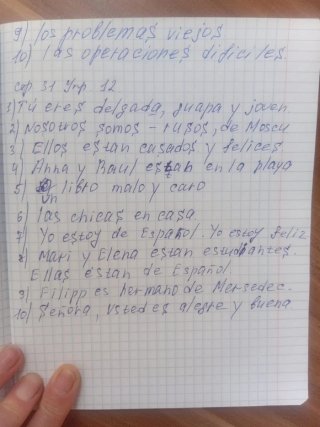 9) los problemas viejos
10) las operaciones dificiles.
стр 31 Упр 12
1) Tú eres delgada, guapa y joven.
2) Nosotros somos - rusos, de Moscu
3) Ellos estan casados y felices
4) Anna y Raul estan en la playa
5) Un libro malo y caro
6) las chicas en casa.
7) Yo estoy de Español. Yo estoy feliz
8) Mari y Elena estan estudiantes.
Ellas estan de Español.
9) Filipp es hermano de Mersedec.
10) Señora, usted es alegre y buena